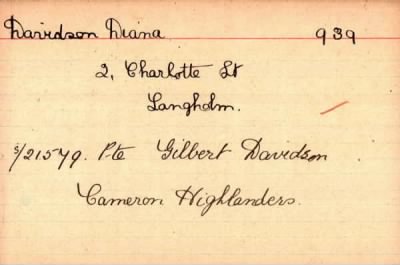 Davidson Diana 939
2, Charlotte St
Langholm.
S/21579. Pte Gilbert Davidson
Cameron Highlanders.